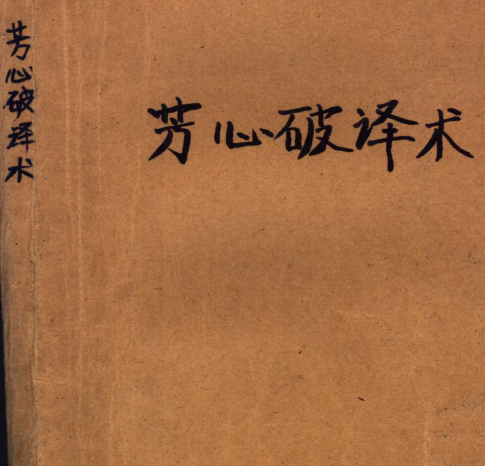 芳心破译术
芳心破译术